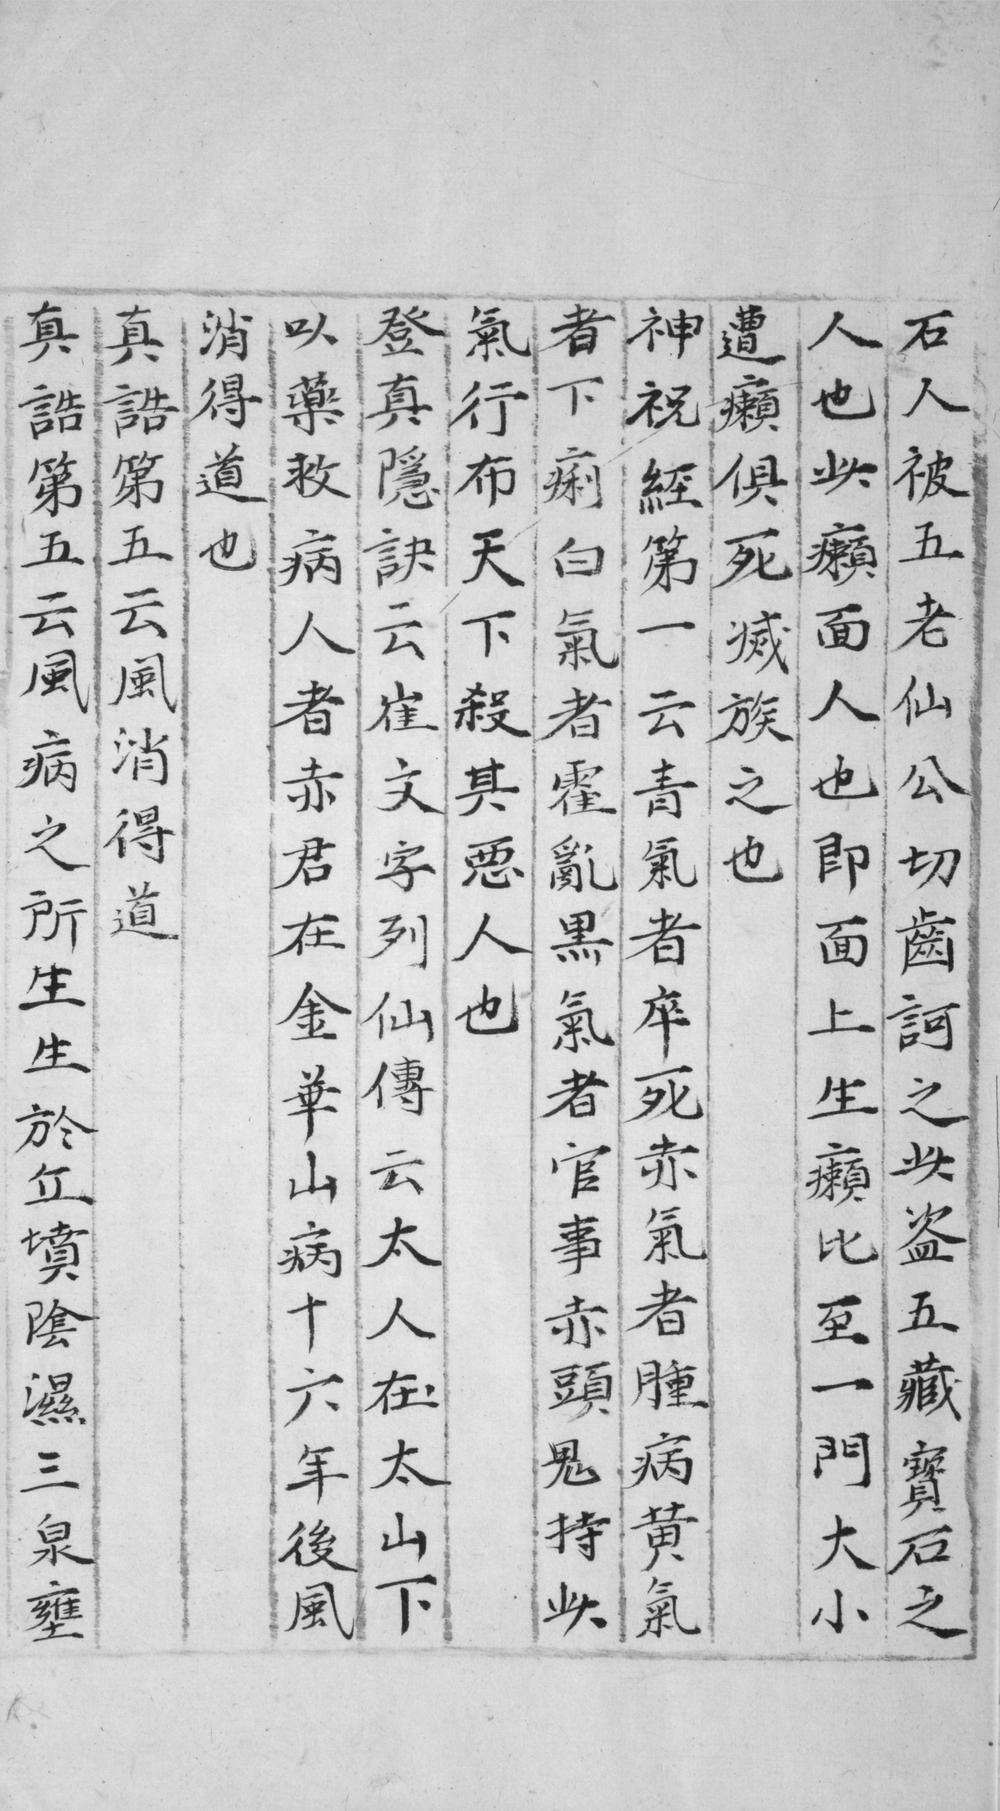 石人被五老仙公切齒訶之此盗五藏寳石之
人也此癩面人也即面上生癩比至一門大小
遭癩俱死滅族之也
神祝經第一云青氣者卒死赤氣者腫病黄氣
者下痢白氣者霍亂黒氣者官事赤頭鬼持此
氣行布天下殺其惡人也
登真隱訣云崔文字列仙傳云太人在太山下
以藥救病人者赤君在金華山病十六年後風
消得道也
真誥第五云風消得道
真誥第五云風病之所生生於丘墳陰濕三泉壅